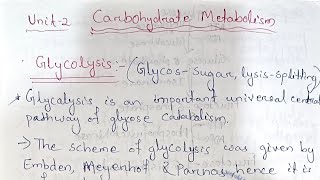 Unit-2 Carbohydrate Metabolism
• Glycolysis:- (Glycos-Sugar, lysis-splitting)
* Glycalysis is an important universal central
pathway of glycose catabolism.
→ The scheme of glycolysis was given by
Embden, Meyenhof & Parnas hence it is